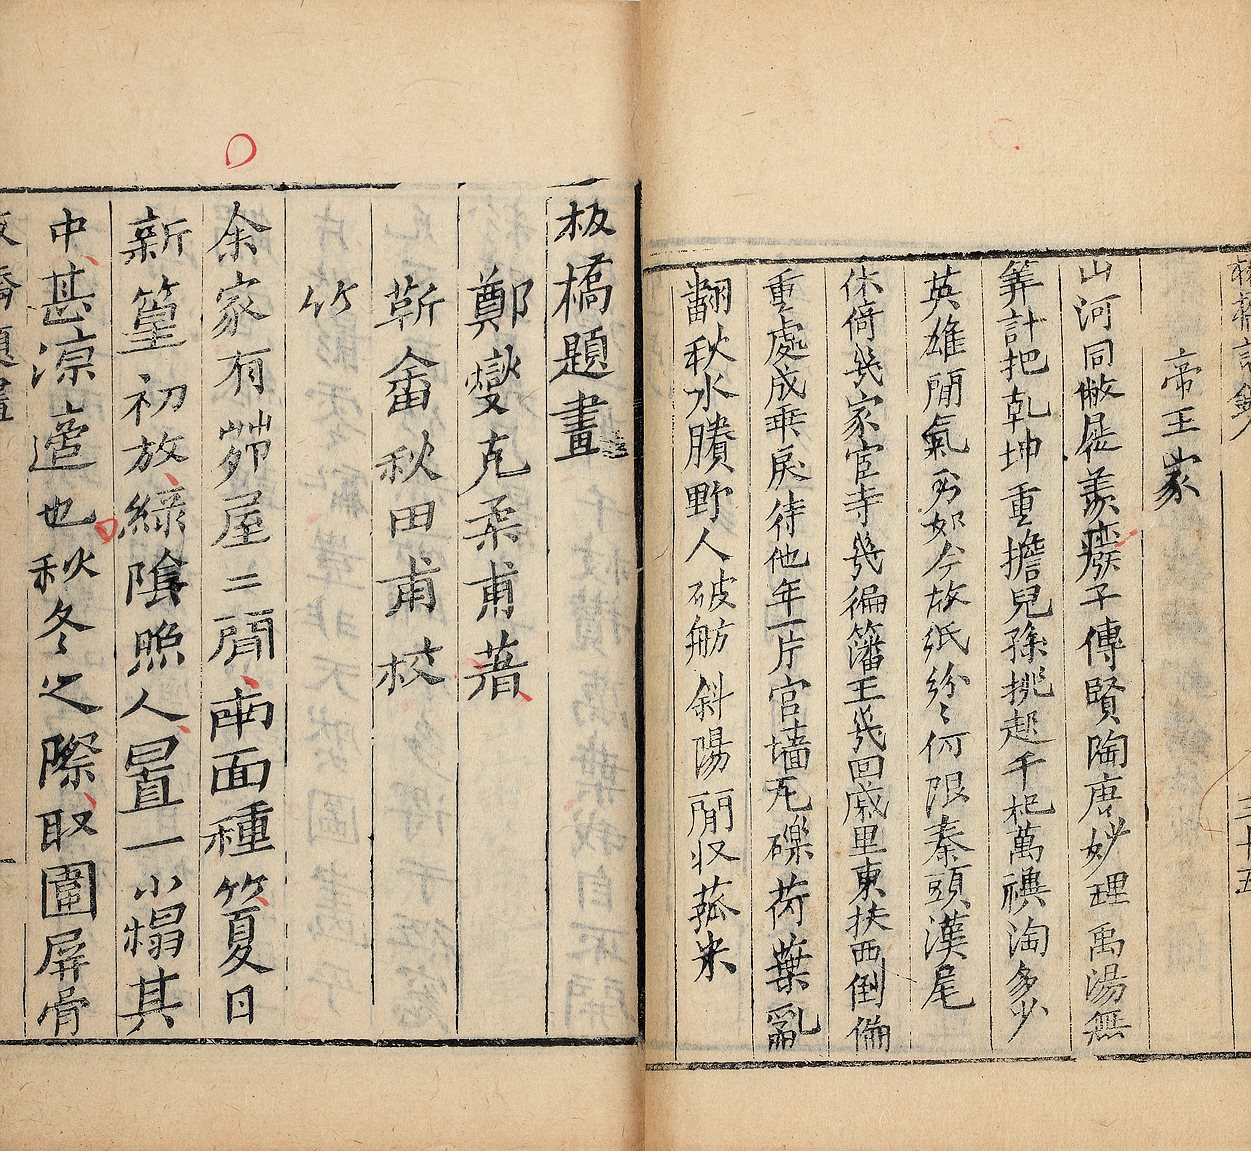 帝王家
山河同敝屣羨癈子傳賢陶唐妙理禹湯無
筭計把乾坤重擔兒孫挑起千秬萬禩淘多少
英雄閒氣到如今故紙紛〻何限秦頭漢尾
休倚幾家宦寺幾徧藩王幾回戚里東扶西倒偏
重處成乖戾待他年一片宫墻瓦礫荷葉亂
翻秋水賸野人破舫斜陽閒収菰米
板橋題畫
鄭燮克柔甫著
靳畬秋田甫校
竹
余家有茆屋二間南面種竹夏日
新篁初放綠陰照人置一小榻其
中甚凉適也秋冬之際取圍屏骨
板橋題畫